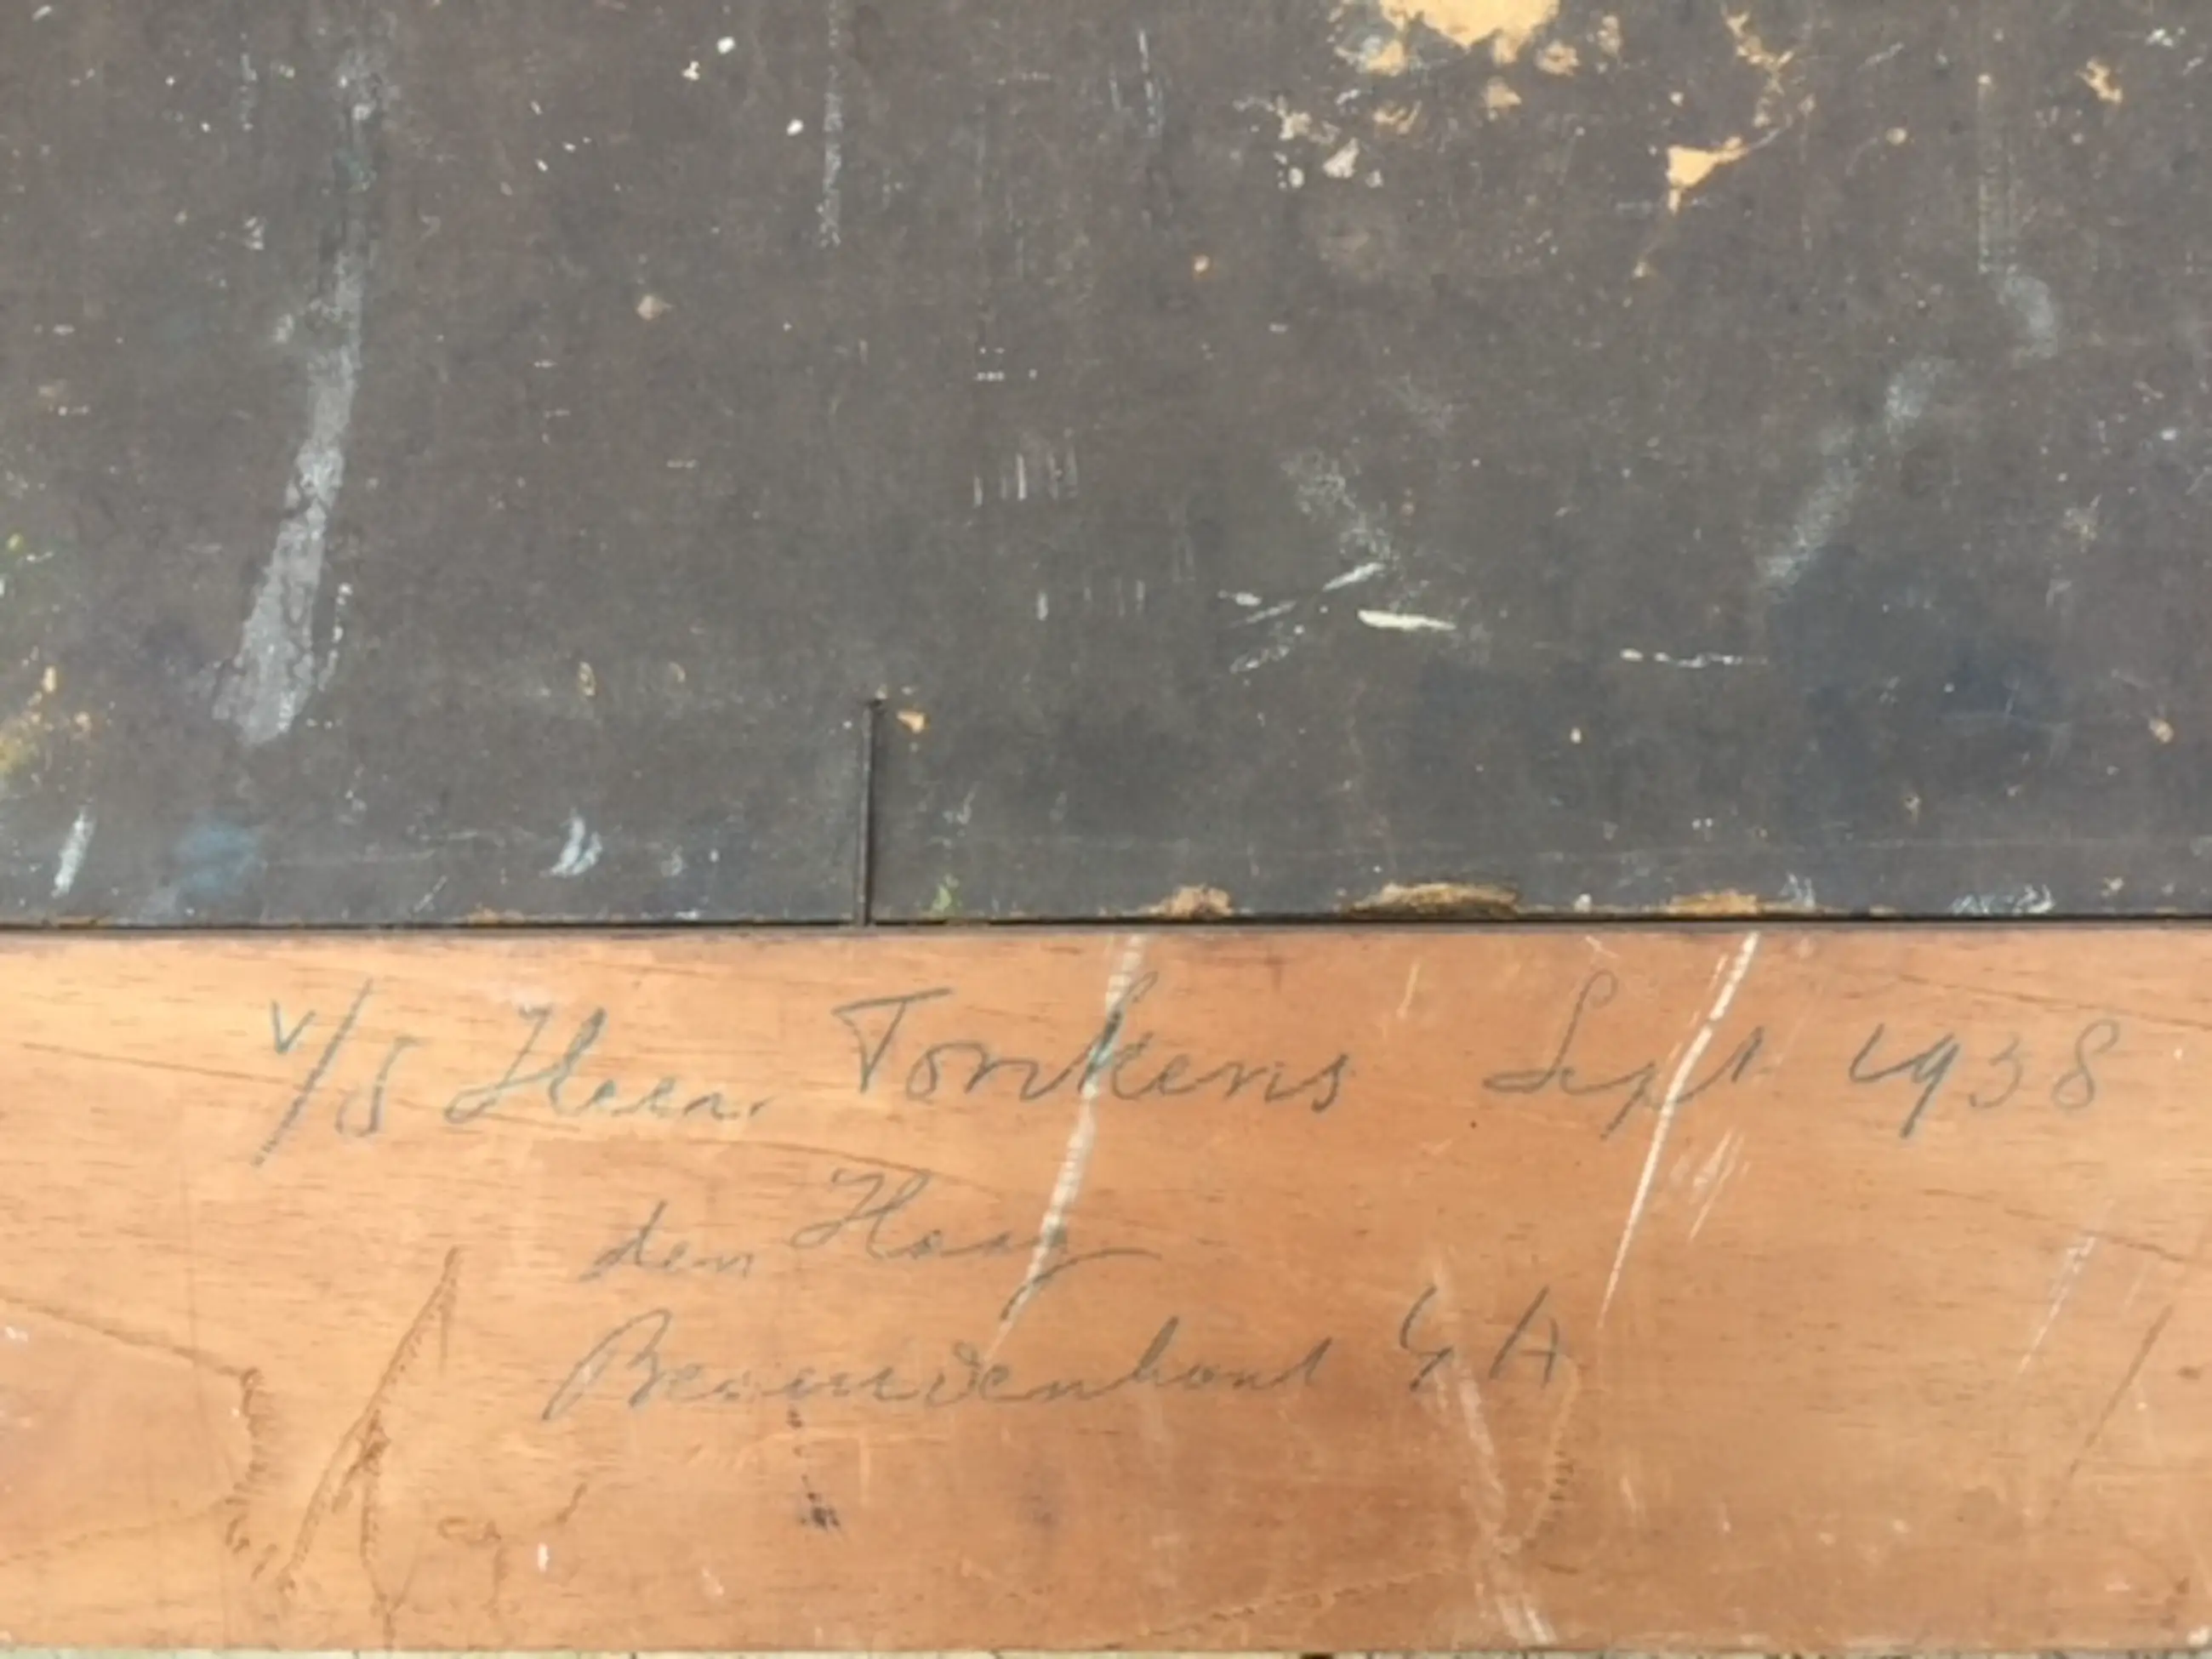 v/d Heer. Tonkens Sept 1938
den Haag
Bezuidenhout A